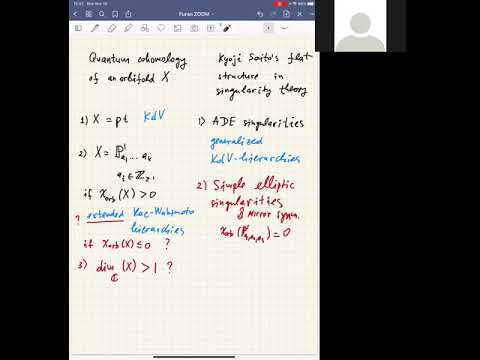 Furan ZOOM
Quantum cohomology
of an orbifold X
1) X = pt KdV
2) X = ℙ¹ₐ₁,...,ₐₖ
aᵢ ∈ ℤ≥₁
if χorb(X) > 0
? extended Kac-Wakimoto
hierarchies
if χorb(X) ≤ 0 ?
3) dim_ℂ (X) > 1 ?
Kyoji Saito's flat
structure in
singularity theory
1) ADE singularities
generalized
KdV-hierarchies
2) Simple elliptic
singularities
⇕ Mirror symm.
χorb(ℙ¹ₐ₁,ₐ₂,ₐ₃) = 0